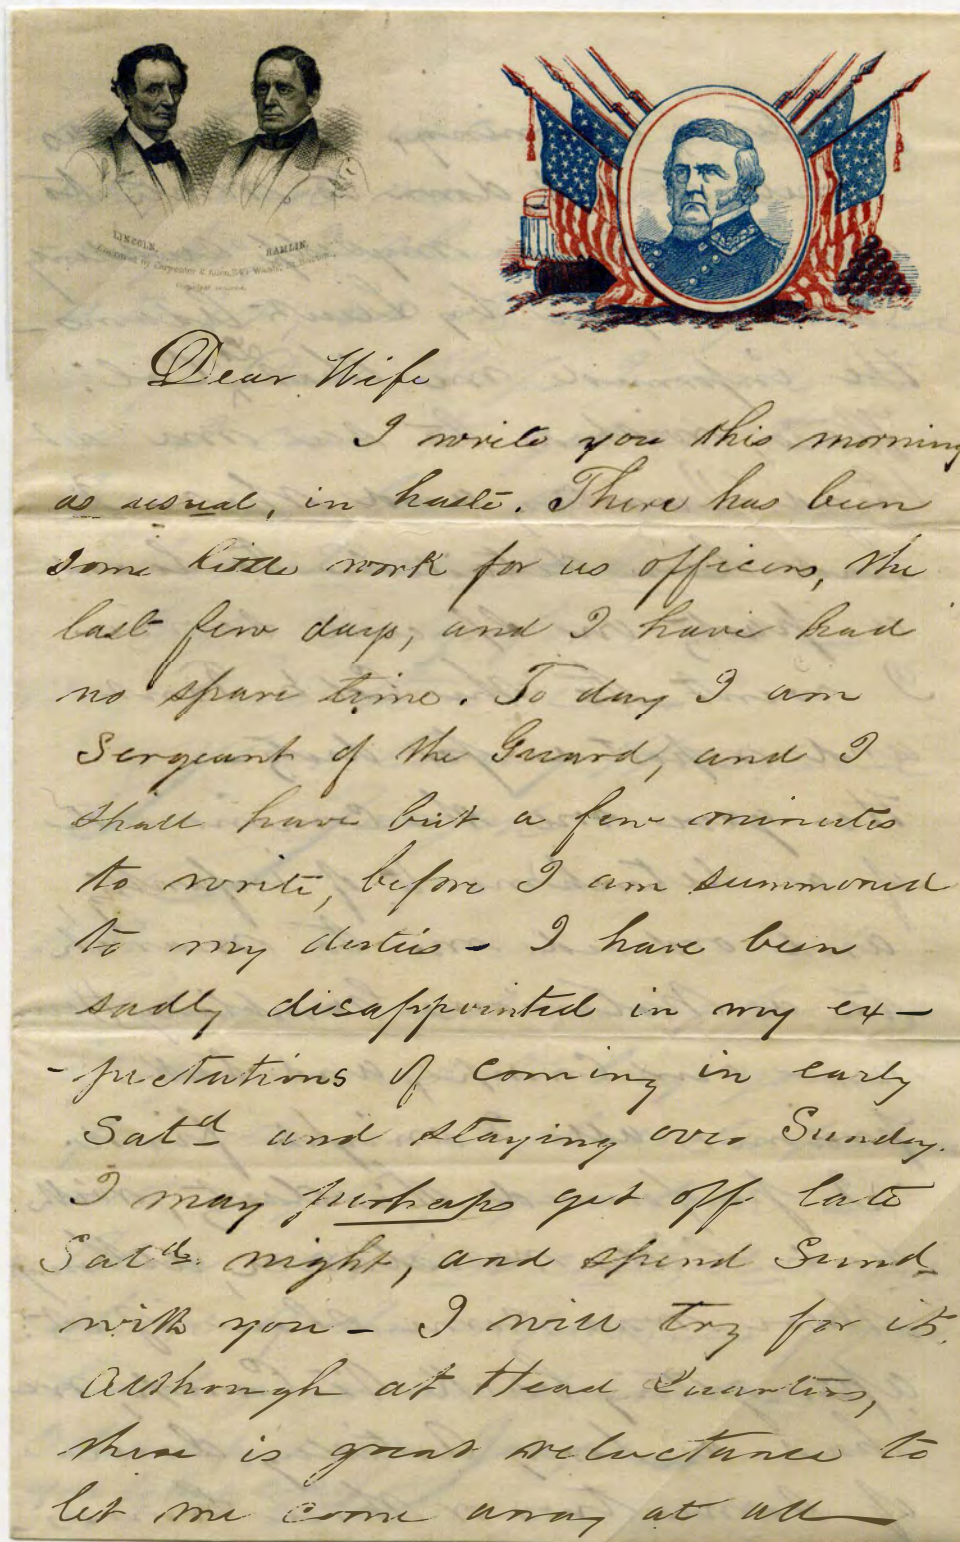 LINCOLN,
HAMLIN.
Carpenter & Allen,
Dear Wife
I write you this morning
as usual, in haste. There has been
some little work for us officers, the
last few days, and I have had
no spare time. To day I am
Sergeant of the Guard, and I
shall have but a few minutes
to write, before I am summoned
to my duties – I have been
sadly disappointed in my ex–
–pectations of coming in early
Satd and staying over Sunday.
I may perhaps get off late
Satd. night, and spend Sund.
with you – I will try for it.
Although at Head Quarters,
there is great reluctance to
let me come away at all –